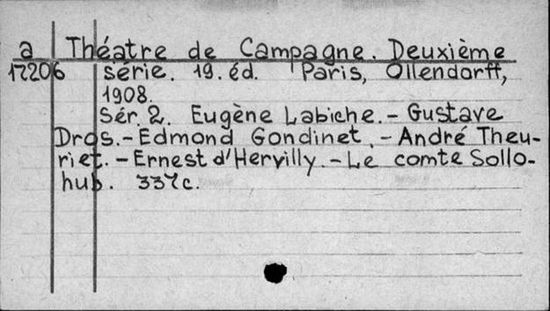 a Théatre de Campagne. Deuxième
17206 série. 19. éd. Paris, Ollendorff,
1908.
Sér. 2. Eugène Labiche. - Gustave
Dros. - Edmond Gondinet. - André Theu-
riet. - Ernest d'Hervilly. - Le comte Sollo-
hub. 337 c.